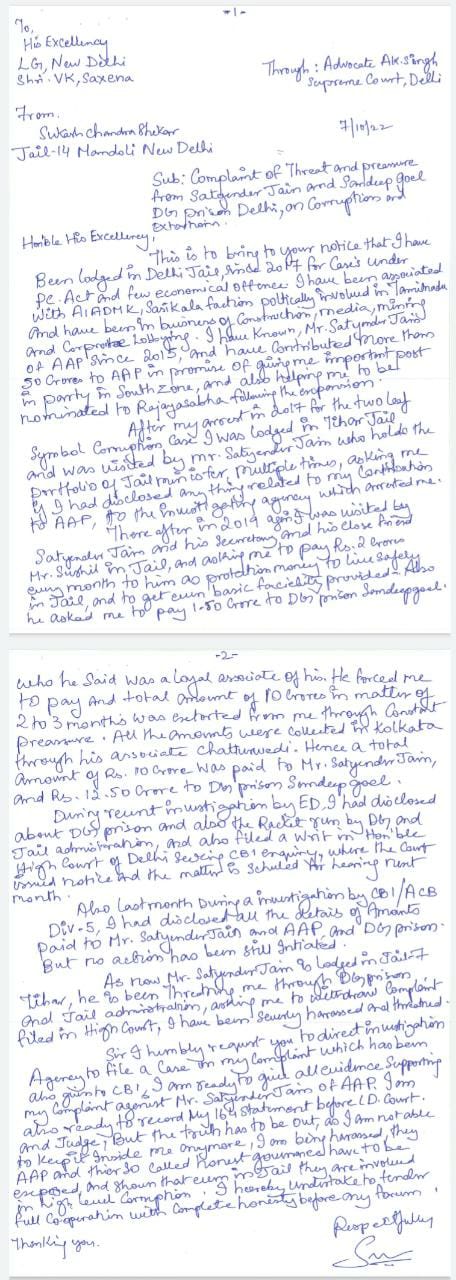 -1-
To,
His Excellency
LG, New Delhi
Shri. VK, Saxena
Through: Advocate AK. Singh
Supreme Court, Delhi
From.
Sukash Chandra Shekar
Jail-14 Mandoli New Delhi
7/10/22
Sub: Complaint of Threat and preassure
from Satyender Jain and Sandeep goel
DG prison Delhi, on Corruption and
Extortion.
Hon'ble His Excellency,
This is to bring to your notice that I have
Been lodged in Delhi Jail, since 2017 for Case's under
PC. Act and few economical offence. I have been associated
with AIADMK, Sasikala faction politically involved in Tamilnadu
and have been in business of Construction, media, mining
and Corporate Lobbying. I have known, Mr. Satynder Jain
of AAP since 2015, and have contributed more than
50 Crores to AAP in promise of giving me important post
in party in South Zone, and also helping me to be
nominated to Rajayasabha following the expansion.
After my arrest in 2017 for the two leaf
Symbol Corruption Case I was lodged in Tihar Jail
and was visited by mr. Satyender Jain who holds the
portfolio of Jail minister, multiple times, asking me
if I had disclosed anything related to my Contribution
to AAP, to the investigating agency which arrested me.
There after in 2019 again I was visited by
Satyender Jain and his Secretary, and his close friend
Mr. Sushil in Jail, and asking me to pay Rs. 2 crores
every month to him as protection money to live safely
in Jail, and to get even basic facility provided. Also
he asked me to pay 1.50 Crore to DG prison Sandeep goel.
-2-
who he said was a loyal associate of his. He forced me
to pay and total amount of 10 Crores in matter of
2 to 3 months was extorted from me through Constant
preassure. All the amounts were collected in Kolkata
through his associate chatturvedi. Hence a total
amount of Rs. 10 Crore was paid to Mr. Satyender Jain,
and Rs. 12.50 Crore to DG prison Sandeep goel.
During recent investigation by ED, I had disclosed
about DG prison and also the Racket run by DG and
Jail administration, and also filed a writ in Hon'ble
High Court of Delhi Seeking CBI enquiry, where the Court
issued notice and the matter is schuled for hearing next
month.
Also last month During a investigation by CBI/ACB
Div-5, I had disclosed all the details of Amonts
paid to Mr. Satyender Jain and AAP, and DG prison.
But no action has been still Intiated.
As now Mr. Satyender Jain is lodged in Jail-7
Tihar, he is been Threatning me through DG prison,
and Jail administration, asking me to withdraw Complaint
filed in High Court, I have been Severly harassed and threatned.
Sir I humbly request you to direct investigation
Agency to file a Case on my complaint which has been
also given to CBI, I am ready to give all evidence supporting
my complaint against Mr. Satyender Jain of AAP. I am
also ready to record my 164 statement before LD. Court.
and Judge, But the truth has to be out, as I am not able
to keep it inside me anymore, I am being harassed, they
AAP and thier so called honest governance have to be
exposed, and shown that even in Jail they are involved
in high level Corruption. I hereby undertake to tender
full Co-operation with complete honesty before any forum.
Respectfully
Thanking you.